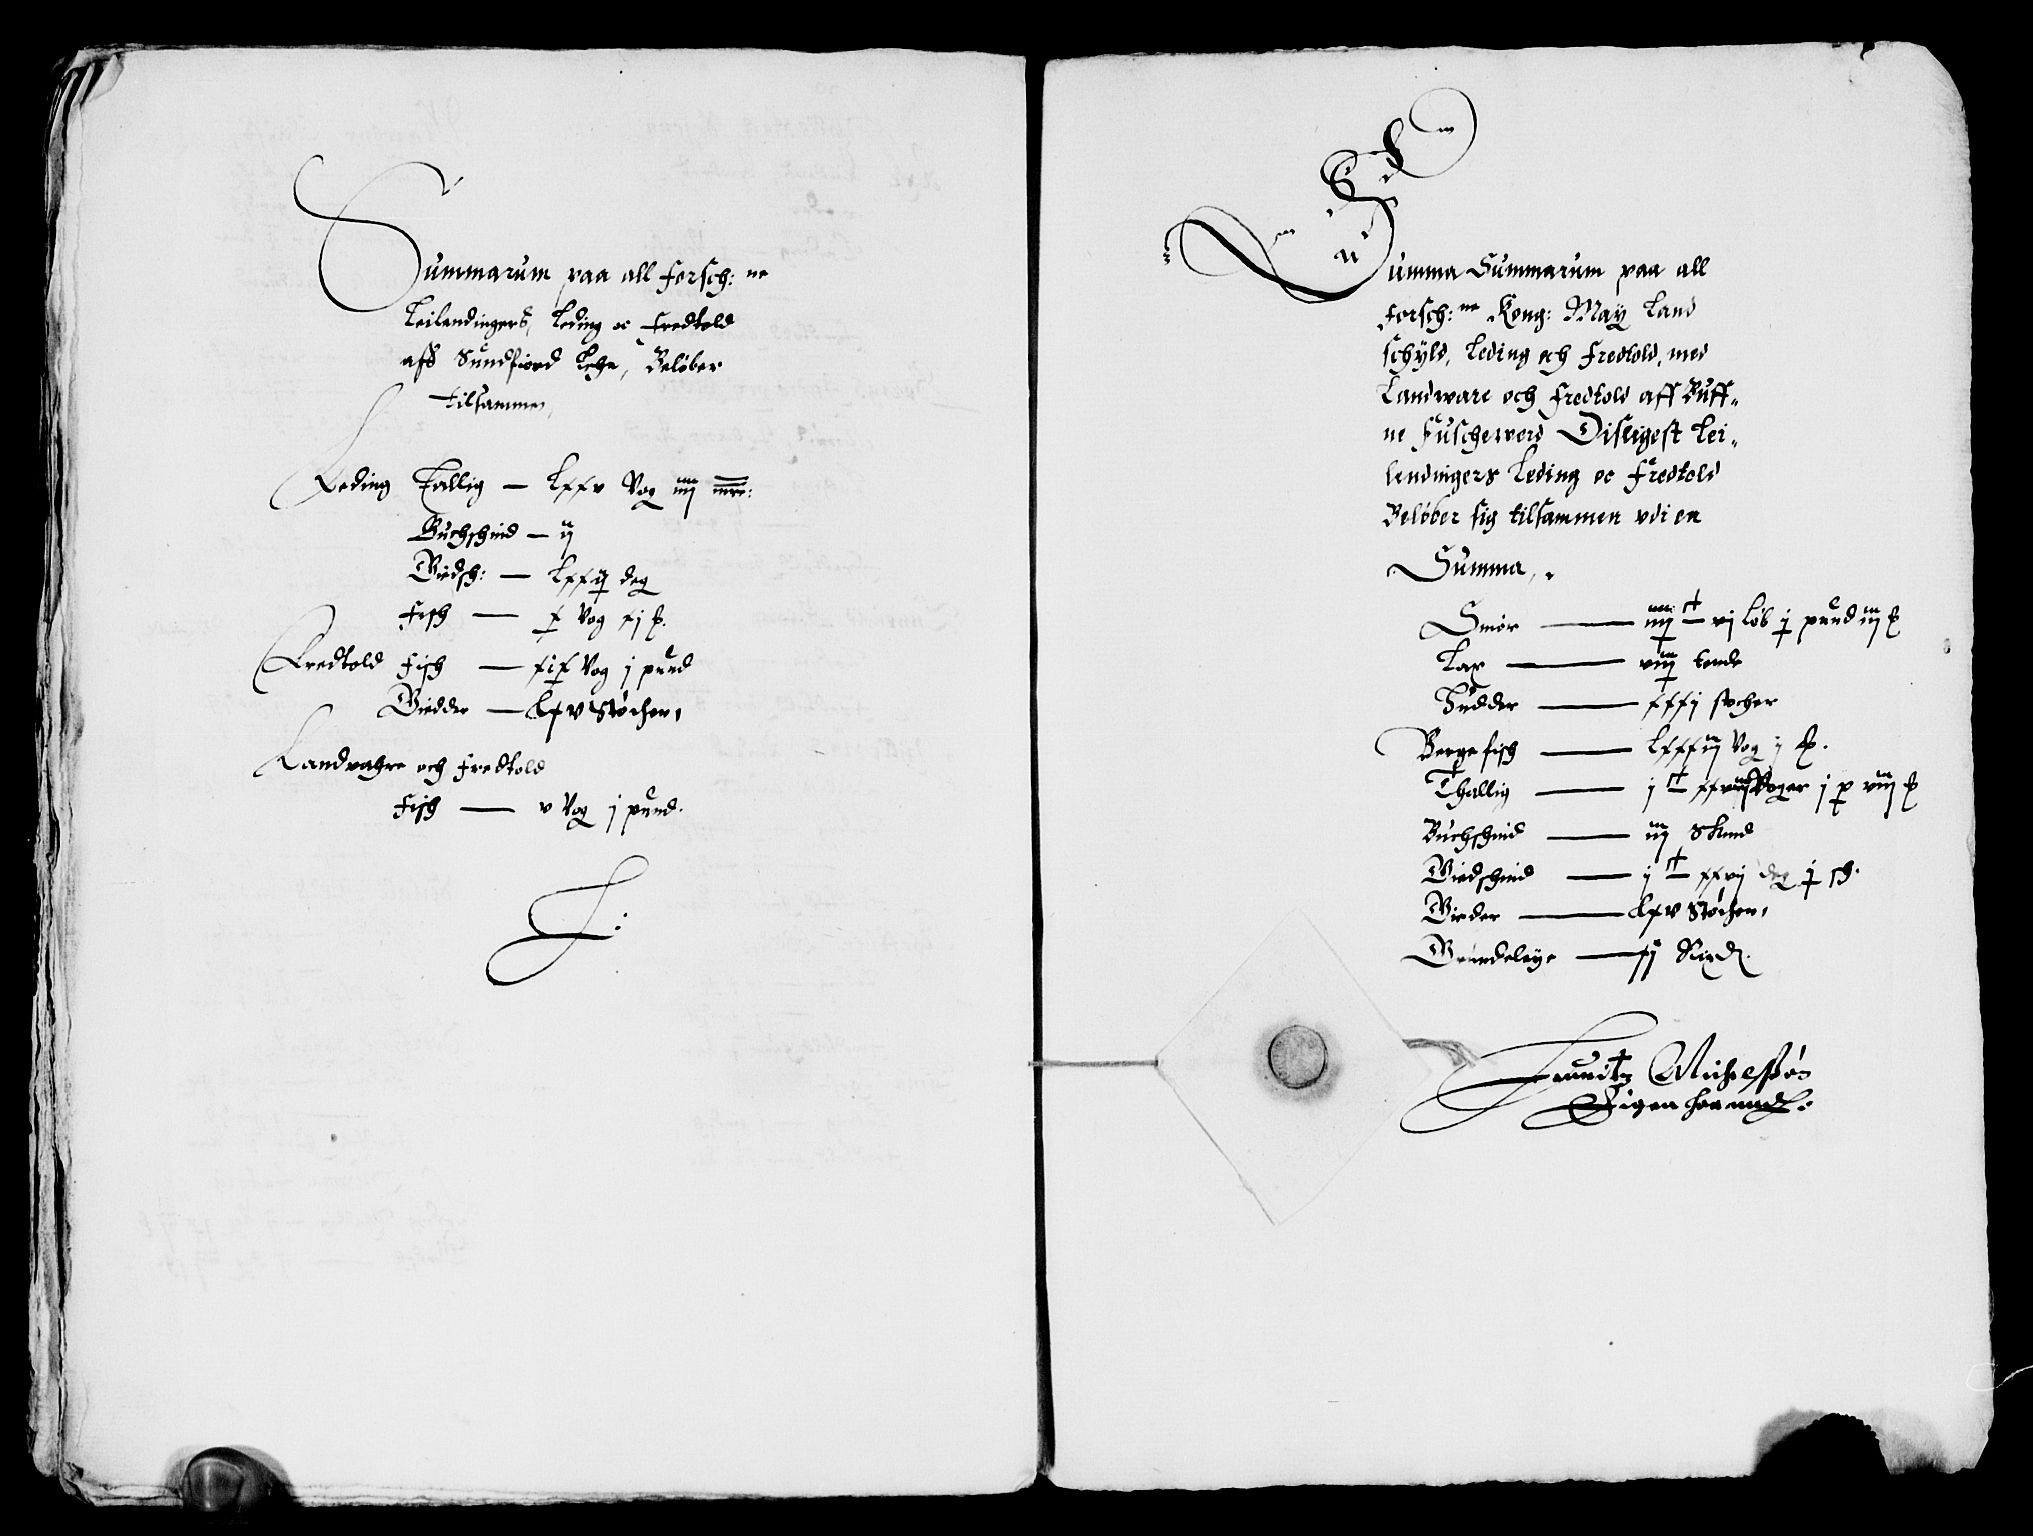 Summarum paa all forsch: ne
Leilendingers, Leding oc fredtold
aff Sundfiord Lehn, Beløber
tilsammen,
Leding Tallig — Lxxv Vog iiij mrc:
Buchschind — ij
Giedsch: — Lxxij deg
Fisch — x Vog xj £.
Fredtold Fisch — xix Vog j pund
Giedder — Lxv Støcher,
Landvahre och Fredtold
Fisch — v Vog j pund.
Summa Summarum paa all
forsch: ne Kong: May Land
schyld, Leding och Fredtold, med
Landware och Fredtold aff Buff-
ne Huschewerd Disligest Lei-
lendingers Leding oc Fredtold
Beløber sig tilsammen vdi en
Summa,
Smør — iiij C vj løb j pund iij £
Lax — viij tende
Hudder — xxxj stocher
Berge fisch — Lxxxiij Vog j £.
Thallig — j C xxviij Voger j p viij £
Buchschind — iij Skind
Giedschind — j C xxvj deg j sch.
Gieder — Lxv Støcher,
Grundeleye — xj Rixd.
Lauritz Michelsøn
Eigen haannd